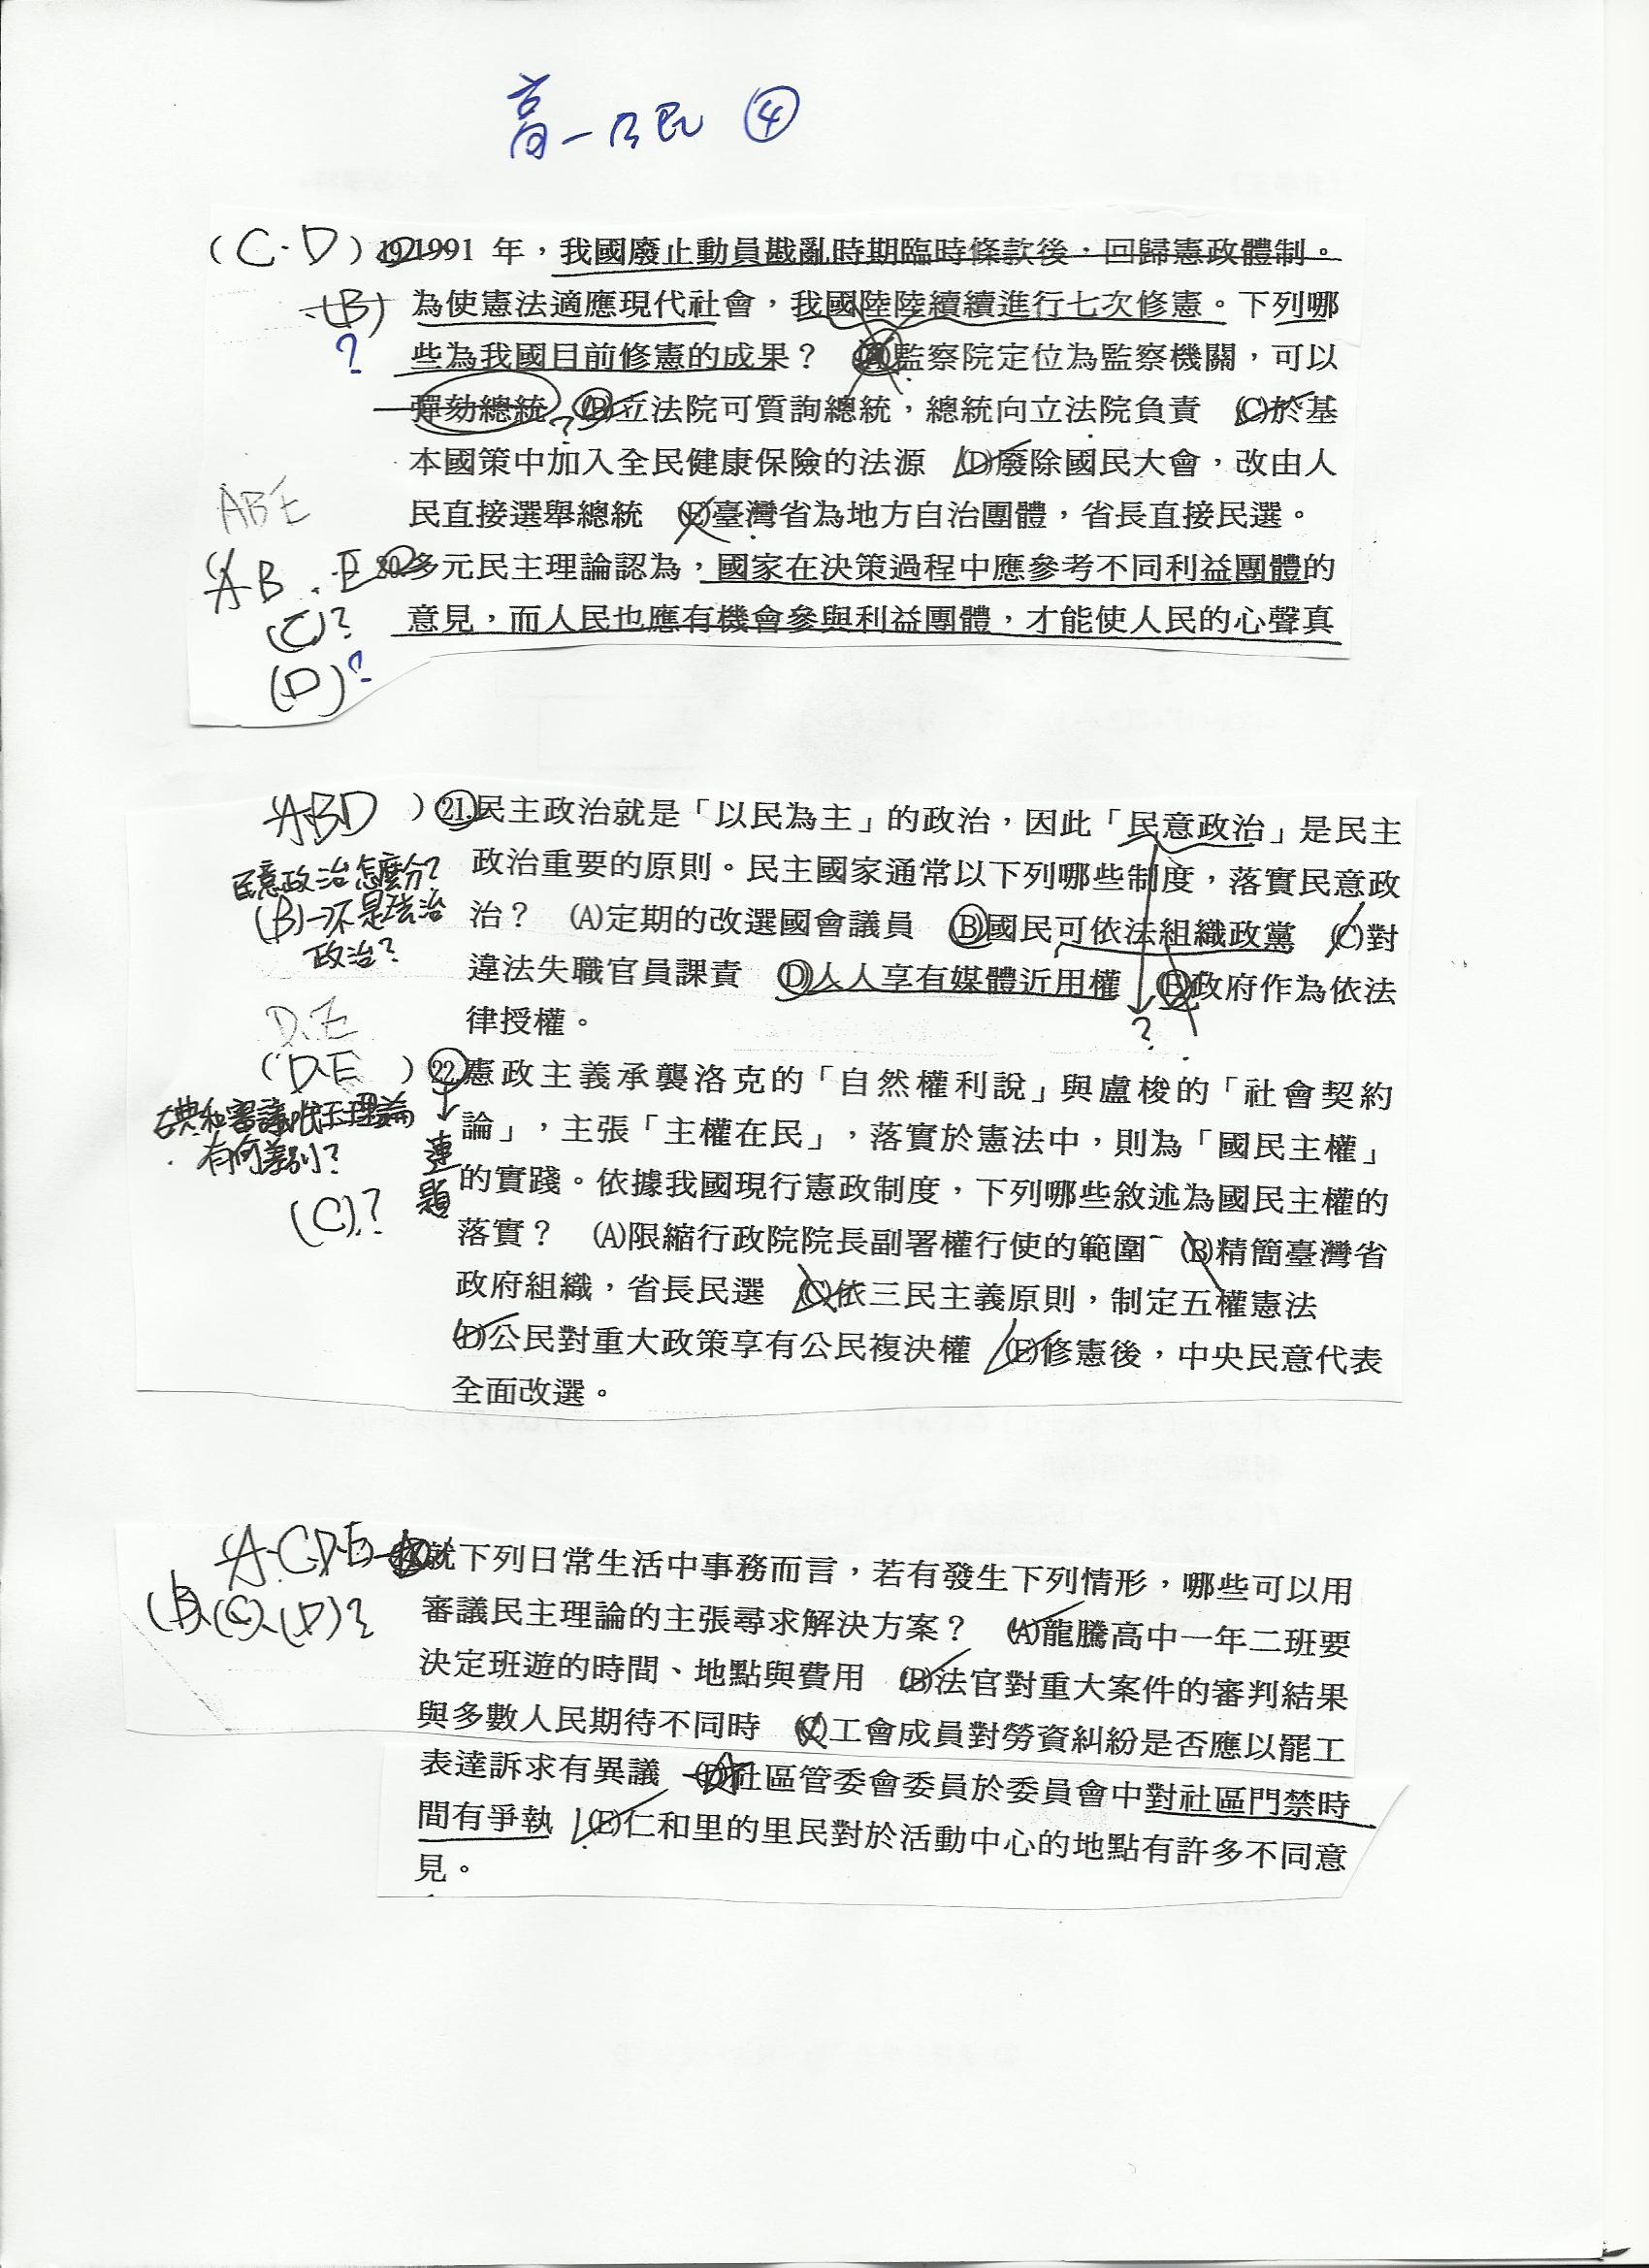 高一公民 ④
(C.D) 19.1991 年，我國廢止動員戡亂時期臨時條款後，回歸憲政體制。
(B) 為使憲法適應現代社會，我國陸陸續續進行七次修憲。下列哪
? 些為我國目前修憲的成果？ (A)監察院定位為監察機關，可以
彈劾總統 ? (B)立法院可質詢總統，總統向立法院負責 (C)於基
本國策中加入全民健康保險的法源 (D)廢除國民大會，改由人
ABE 民直接選舉總統 (E)臺灣省為地方自治團體，省長直接民選。
(A B . E 20.多元民主理論認為，國家在決策過程中應參考不同利益團體的
(C)? 意見，而人民也應有機會參與利益團體，才能使人民的心聲真
(D)?
(ABD ) 21.民主政治就是「以民為主」的政治，因此「民意政治」是民主
民意政治怎麼分? 政治重要的原則。民主國家通常以下列哪些制度，落實民意政
(B)→不是法治 治？ (A)定期的改選國會議員 (B)國民可依法組織政黨 (C)對
政治? 違法失職官員課責 (D)人人享有媒體近用權 (E)政府作為依法
D.E 律授權。 ?
(D.E ) 22.憲政主義承襲洛克的「自然權利說」與盧梭的「社會契約
古典和審議民主理論 論」，主張「主權在民」，落實於憲法中，則為「國民主權」
有何差別? 連題 的實踐。依據我國現行憲政制度，下列哪些敘述為國民主權的
(C)? 落實？ (A)限縮行政院院長副署權行使的範圍 (B)精簡臺灣省
政府組織，省長民選 (C)依三民主義原則，制定五權憲法
(D)公民對重大政策享有公民複決權 (E)修憲後，中央民意代表
全面改選。
(A.C.D.E 就下列日常生活中事務而言，若有發生下列情形，哪些可以用
(B)、(C)、(D)? 審議民主理論的主張尋求解決方案？ (A)龍騰高中一年二班要
決定班遊的時間、地點與費用 (B)法官對重大案件的審判結果
與多數人民期待不同時 (C)工會成員對勞資糾紛是否應以罷工
表達訴求有異議 (D)社區管委會委員於委員會中對社區門禁時
間有爭執 (E)仁和里的里民對於活動中心的地點有許多不同意
見。